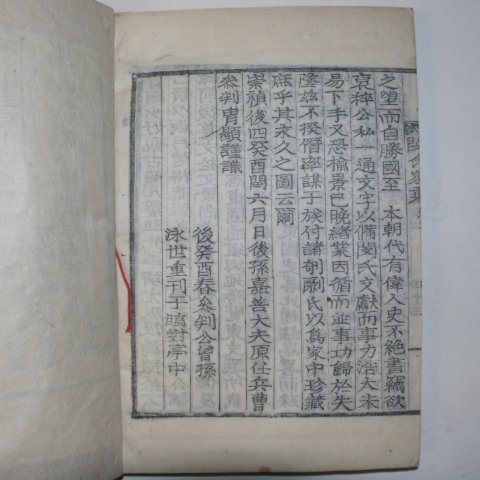 之望而自勝國至 本朝代有偉人史不絶書竊欲
裒稡公私一通文字以備閔氏文獻而事力浩大未
易下手又恐楡景已晩緖業因循而並事功歸於失
墜玆不揆僭率謀于族付諸剞劂氏以爲家中珍藏
庶乎其永久之圖云爾
崇禎後四癸酉閏六月日後孫嘉善大夫原任兵曹
參判冑顯謹識
後癸酉春參判公曾孫
泳世重刊于臨對亭中